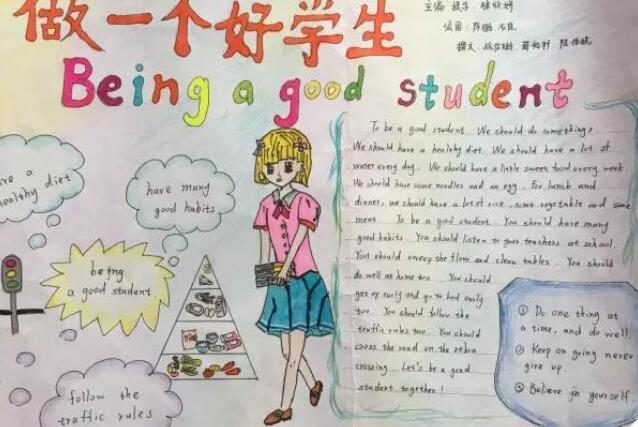 做一个好学生
Being a good student
主编
绘图
撰文
have a
healthy diet
have many
good habits
being
a good student
follow the
traffic rules
To be a good student. We should do somethings.
We should have a healthy diet. We should have a lot of
water every day. We should have a little sweet food every week.
We should have some noodles and an egg. For lunch and
dinner, we should have a lot of rice, some vegetable and some
meat. To be a good student. You should have many
good habits. You should listen to your teachers at school.
You should sweep the floor and clean tables. You should
do well at home too. You should
get up early and go to bed early
too. You should follow the
traffic rules too. You should
cross the road on the zebra
crossing. Let's be a good
student together!
① Do one thing at
a time, and do well.
② Keep on going never
give up.
③ Believe in yourself.